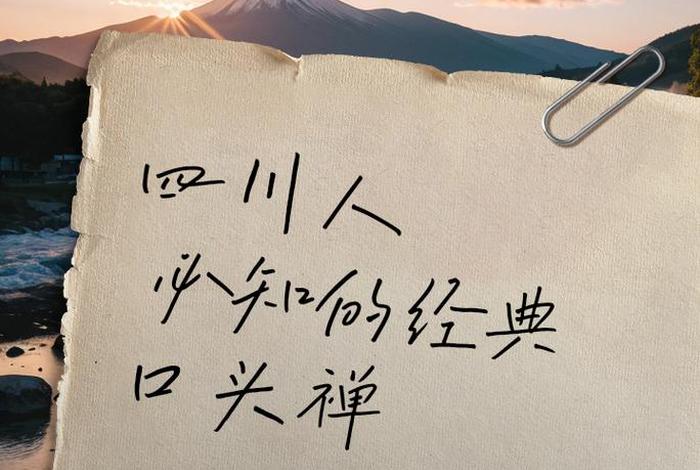 四川人
必知的经典
口头禅